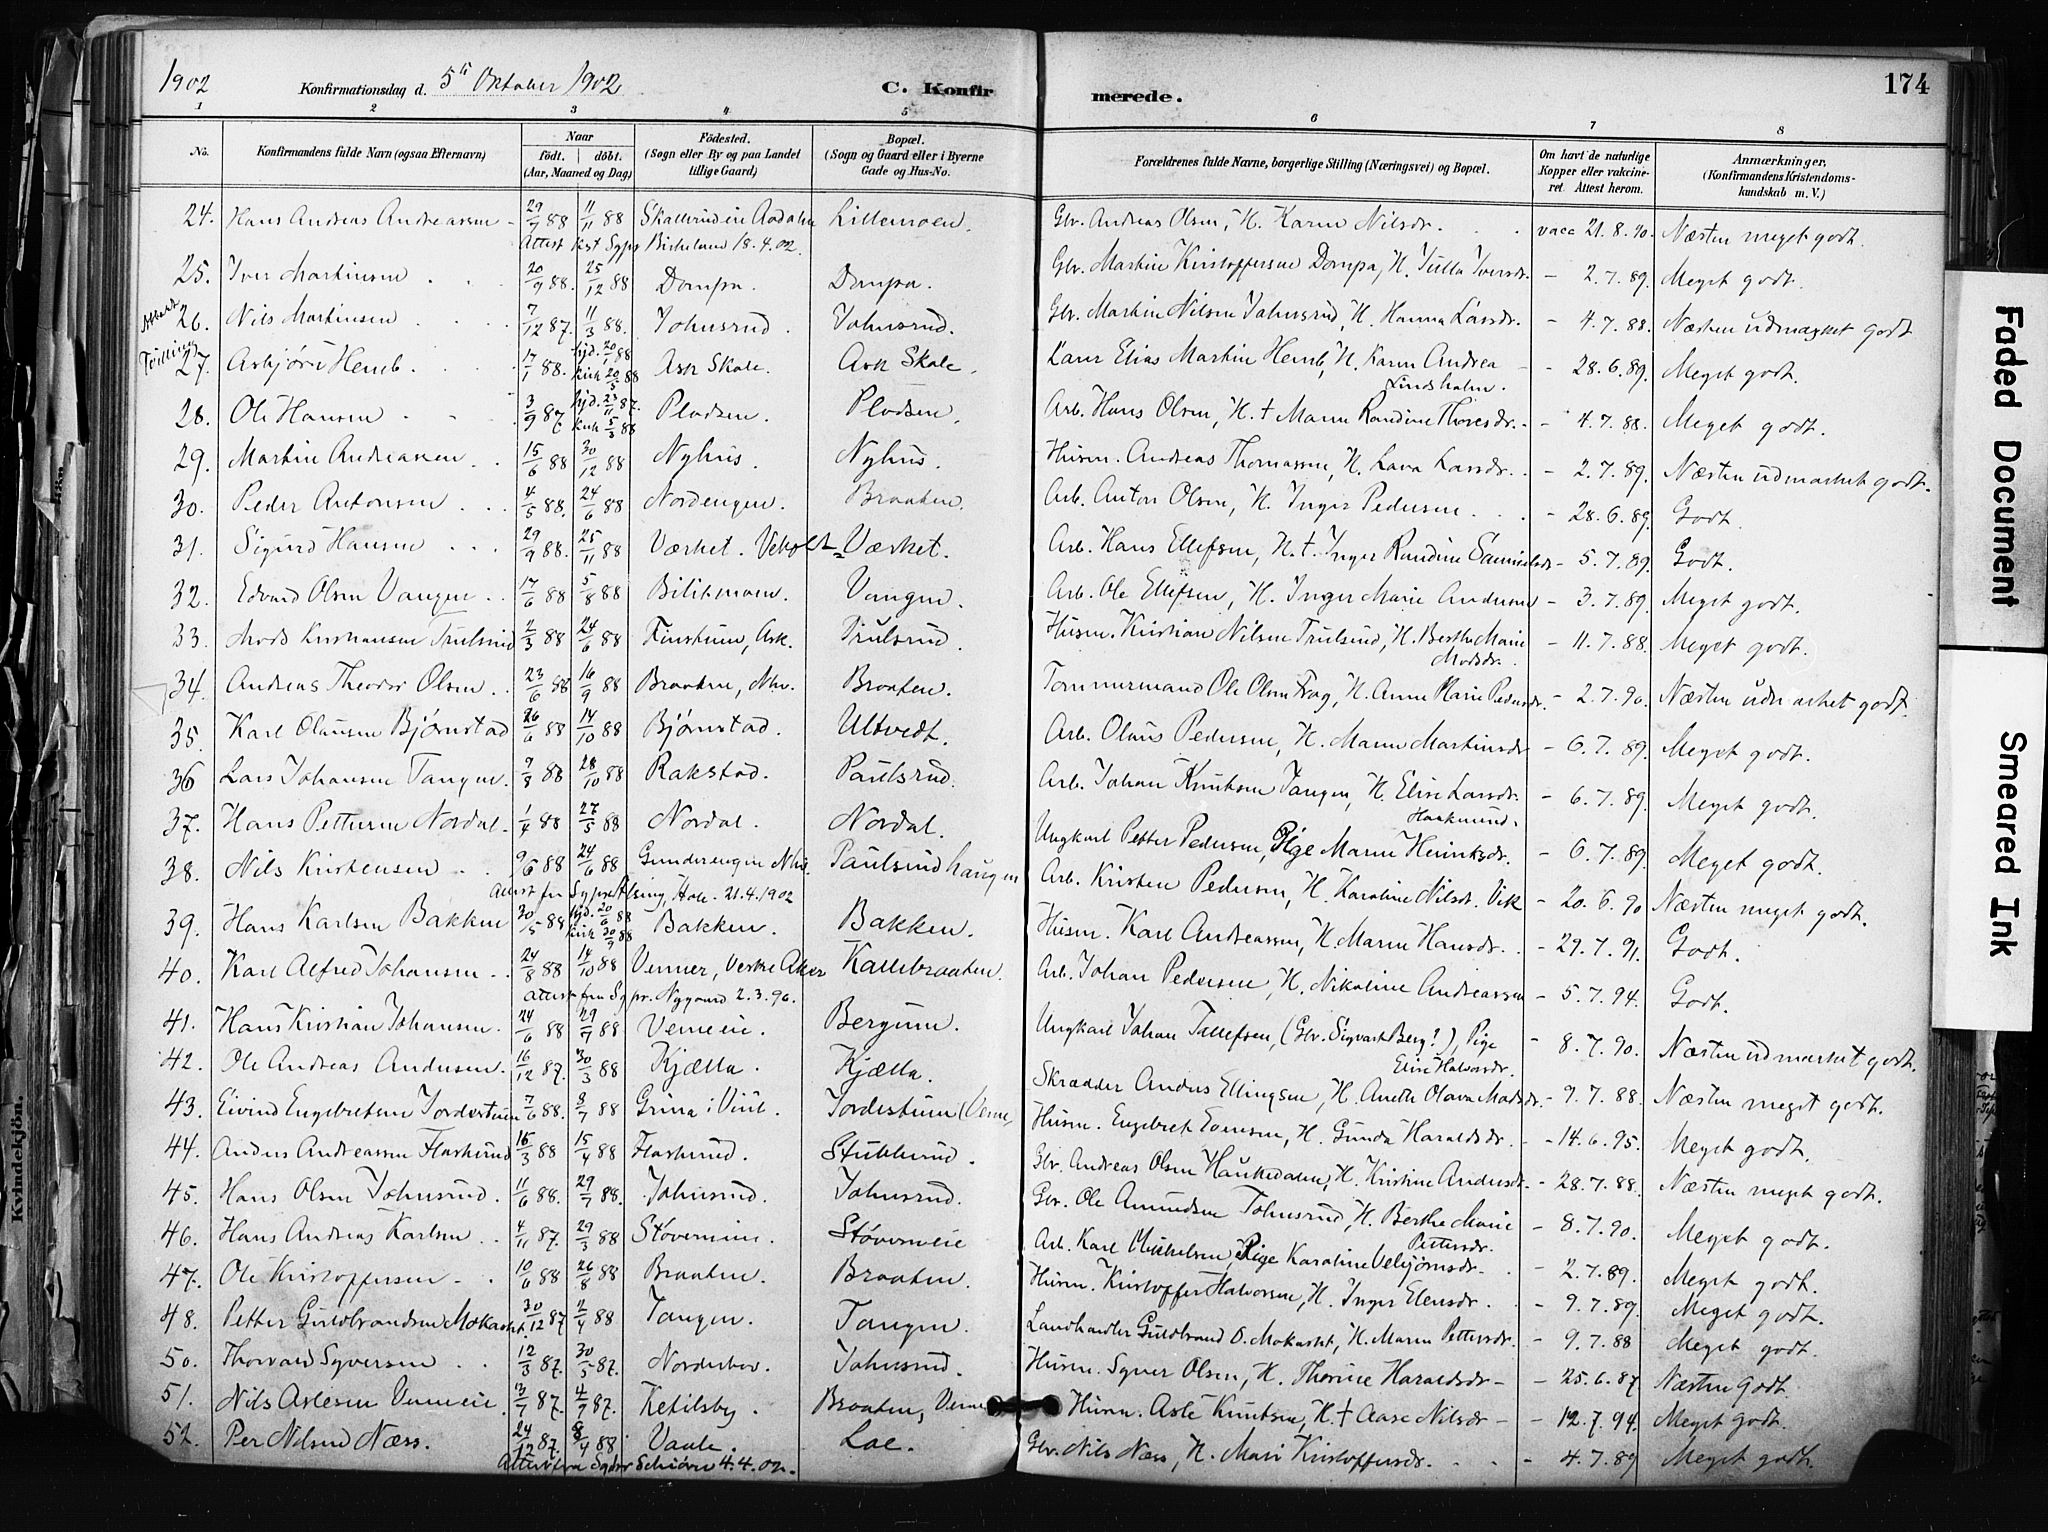 1902 Konfirmationsdag d. 5ti Oktober 1902 C. Konfirmerede. 174
1 2 3 4 5 6 7 8
No. Konfirmandens fulde Navn (ogsaa Efternavn) Naar födt. döbt. (Aar, Maaned og Dag) Födested. (Sogn eller By og paa Landet tillige Gaard) Bopæl. (Sogn og Gaard eller i Byerne Gade og Hus-No. Forældrenes fulde Navne, borgerlige Stilling (Næringsvei) og Bopæl. Om havt de naturlige Kopper eller vakcineret. Attest herom. Anmærkninger, (Konfirmandens Kristendomskundskab m. V.)
24. Hans Andreas Andreassen 29/7 88 11/11 88 Lillemoen. Gbr. Andreas Olsen, H. Karen Nilsdr. vacc 21.8.90. Næsten meget godt.
25. Iver Martinsen 20/9 88. 25/12 88 Dompa. Dompa. Gbr. Martin Kristoffersen Dompa, H. Julla Iversdr. - 2.7.89. Meget godt.
26. Nils Martinsen 7/12 87. 11/3 88. Johnsrud. Johnsrud. Gbr. Martin Nilsen Johnsrud, H. Hanna Larsdr. - 4.7.88. Næsten udmærket godt
Tvilling 27. Asbjørn Hemb. 17/1 88. hjd. 20/1 88 kirk 20/5 88 Ask Skole. Ask Skole. Lærer Elias Martin Hemb, H. Karen Andrea Lindsholm. - 28.6.89. Meget godt.
28. Ole Hansen 3/9 87 hjd. 23/11 87. kirk 5/3 88 Pladsen. Pladsen. Arb. Hans Olsen, H. † Maren Randine Thoresdr. - 4.7.88. Meget godt.
29. Martin Andreassen 15/6 88 30/12 88 Nyhus. Nyhus. Husm. Andreas Thomassen, H. Lava Larsdr. - 2.7.89. Næsten udmærket godt.
30. Peder Antonsen 4/5 88. 24/6 88 Nordengen. Braaten. Arb. Anton Olsen, H. Inger Pedersen - 28.6.89. Godt.
31. Sigurd Hansen 29/9 88. 25/11 88 Værket. Veholt- Værket. Arb. Hans Ellefsen, H. †. Inger Randine Samuelsdr - 5.7.89. Godt.
32. Edvard Olsen Vangen 17/6 88 5/8 88 Vangen. Arb. Ole Ellefsen, H. Inger Marie Andersen - 3.7.89. Meget godt.
33. Mads Kristiansen Trulsrud 2/3 88 24/6 88 Ask. Trulsrud. Husm. Kristian Nilsen Trulsrud, H. Berthe Marie Madsdr. - 11.7.88. Meget godt.
34. Andreas Theodor Olsen 23/6 88 16/9 88 Braaten, Nhv. Braaten. Tømmermand Ole Olsen Frog, H. Anne Marie Pedersdr. - 2.7.90. Næsten udmærket godt.
35. Karl Olausen Bjørnstad 26/6 88 14/10 88 Bjørnstad. Ultvedt. Arb. Olaus Pedersen, H. Maren Martinsdr - 6.7.89. Meget godt.
36 Lars Johansen Tangen. 7/8 88 28/10 88 Rakstad. Paulsrud. Arb. Johan Knutsen Tangen, H. Elise Larsdr. - 6.7.89. Meget godt.
37. Hans Pettersen Nordal. 1/4 88 27/5 88 Nordal. Nordal. Ungkarl Petter Pedersen, Pige Maren Henriksdr. - 6.7.89. Meget godt.
38. Nils Kristensen 9/6 88 24/6 88 Gunderengen Nhv. Paulsrudhaugen Arb. Kristen Pedersen, H. Karoline Nilsdr. Vik - 20.6.90 Næsten meget godt.
Attest fra Sgpr. Alsing, Hole. 21.4.1902
39. Hans Karlsen Bakken 30/5 88 hjd. 20/6 88 kirk 30/9 88 Bakken. Bakken. Husm. Karl Andreassen, H. Maren Hansdr. - 29.7.91. Godt.
40. Karl Alfred Johansen 24/8 88 14/10 88 Venner, Vestre Aker Kallebraaten. Arb. Johan Pedersen, H. Nikoline Andreassen - 5.7.94. Godt.
Attest fra Sgpr. Nygaard 2.3.90.
41. Hans Kristian Johansen. 24/6 88 29/7 88 Verneeie. Bergum. Ungkarl Johan Tollefsen, (Gbr. Sigvart Berg?), Pige Elise Halvorsdr. - 8.7.90. Næsten udmærket godt.
42. Ole Andreas Andersen. 16/12 87. 30/3 88 Kjælla. Kjælla. Skrædder Anders Ellingsen, H. Anette Olava Madsdr. - 9.7.88. Næsten meget godt.
43. Eivind Engebretsen 7/6 88. 8/7 88 Grina i Viul. Husm. Engebret H. Gunda Haraldsdr. - 14.6.95. Meget godt.
44. Anders Andreassen Flaskerud 16/3 88 15/4 88 Flaskerud. Stubberud. Gbr. Andreas Olsen Haukedalen, H. Kristine Andersdr. - 28.7.88. Næsten meget godt.
45. Hans Olsen Johnsrud. 11/6 88. 29/7 88. Johnsrud. Johnsrud. Gbr. Ole Amundsen Johnsrud, H. Berthe Marie Pettersdr. - 8.7.90. Meget godt.
46. Hans Andreas Karlsen 4/11 87. 29/3 88 Støverneie. Støverneie Arb. Karl Mikkelsen, Pige Karoline Vebjørnsdr. - 2.7.89. Meget godt.
47. Ole Kristoffersen 10/6 88 26/8 88 Braaten. Braaten. Husm. Kristoffer Halvorsen, H. Inger Elensdr. - 9.7.89. Meget godt.
48. Petter Guldbrandsen Mokastet. 30/12 87 2/4 88 Tangen. Tangen. Landhandler Guldbrand O. Mokastet, H. Maren Pettersdr. - 9.7.88 Meget godt.
50. Thorvald Syversen 12/3 87. 30/5 87. Norderhov. Johnsrud. Husm. Syver Olsen, H. Thorine Haraldsdr - 25.6.87 Næsten Godt.
51. Nils Aslesen Verneeie. 13/7 87. 4/9 87. Ketilsby. Braaten, Verne Husm. Asle Knutsen, H. † Aase Nilsdr - 12.7.94. Meget godt.
52. Per Nilsen Næss. 24/12 87. 8/4 88 Vaale. Loe. Gbr. Nils Næss, H. Mari Kristoffersdr. - 4.7.89 Meget godt.
Attest fra Sgpr Schiörn 4.4.02.
Kvindekjön.
Faded Document
Smeared Ink